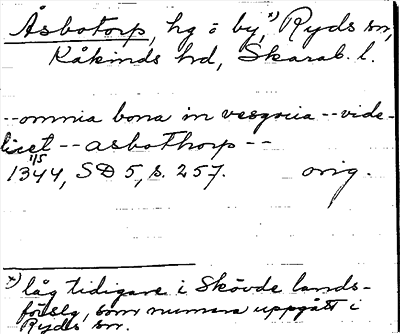 Åsbotorp, hg o by,*) Ryds sn,
Kåkinds hd, Skarab. l.
-- omnia bona in vesgocia -- vide-
licet -- asbothorp --
1/5
1344, SD 5, s. 257. orig.
*) låg tidigare i Skövde lands-
förslg, som numera uppgått i
Ryds sn.